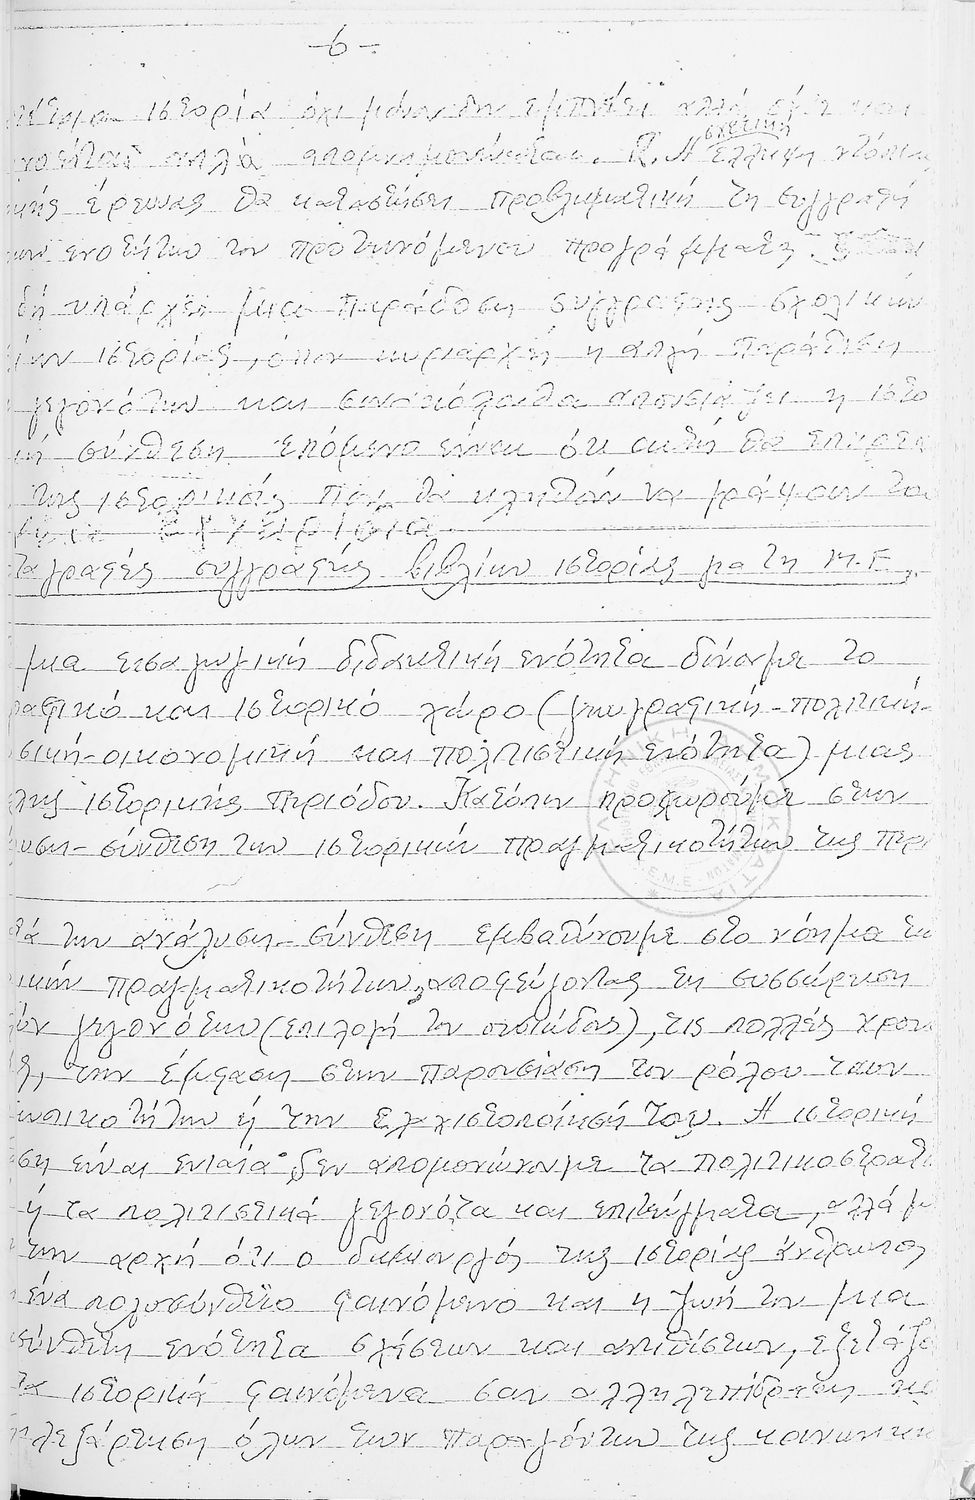 -6-
ιστορία όχι μόνο δεν εμπνέει αλλά ούτε και
απλά απομνημονεύεται. Η σχετική έλλειψη ντόπιας
έρευνας θα καταστήσει προβληματική τη συγγραφή
ενοτήτων του προτεινόμενου προγράμματος.
υπάρχει μια παράδοση συγγραφής σχολικών
ιστορίας, όπου κυριαρχεί η απλή παράθεση
γεγονότων και συνακόλουθα απουσιάζει η ιστο
σύνθεση. Επόμενο είναι ότι αυτή θα επηρεά
τους ιστορικούς που θα κληθούν να γράψουν τα
εγχειρίδια
γραφές συγγραφής βιβλίων ιστορίας για τη Μ.Ε.
μια εισαγωγική διδακτική ενότητα δίνουμε το
ραφικό και ιστορικό χώρο (γεωγραφική-πολιτική-
οικονομική και πολιτιστική ενότητα) μιας
ιστορικής περιόδου. Κατόπιν προχωρούμε στην
υση-σύνθεση των ιστορικών πραγματικοτήτων της περι
τά την ανάλυση-σύνθεση εμβαθύνουμε στο νόημα τω
ικών πραγματικοτήτων, αποφεύγοντας τη συσσώρευση
γεγονότων (επιλογή του ουσιώδους), τις πολλές χρον
την έμφαση στην παρουσίαση του ρόλου των
ωπικοτήτων ή την ελαχιστοποίησή του. Η ιστορική
ση είναι ενιαία· δεν απομονώνουμε τα πολιτικοστρατι
ή τα πολιτιστικά γεγονότα και επιτεύγματα, αλλά με
την αρχή ότι ο δημιουργός της ιστορίας άνθρωπος
ένα πολυσύνθετο φαινόμενο και η ζωή του μια
σύνθετη ενότητα σχέσεων και αντιθέσεων, εξετάζο
τα ιστορικά φαινόμενα σαν αλληλεπίδραση κα
λεξάρτηση όλων των παραγόντων της κοινωνικ